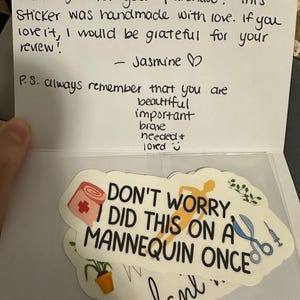 sticker was handmade with love. If you
love it, I would be grateful for your
review!
— Jasmine ♡
P.S. always remember that you are
beautiful
important
brave
needed +
loved
DON'T WORRY,
I DID THIS ON A
MANNEQUIN ONCE